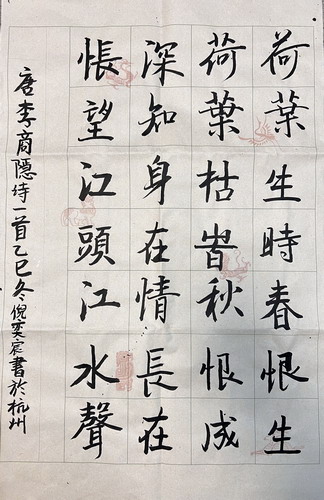 荷葉生時春恨生
荷葉枯時秋恨成
深知身在情長在
悵望江頭江水聲
唐李商隱诗一首乙巳冬倪奕宸書於杭州